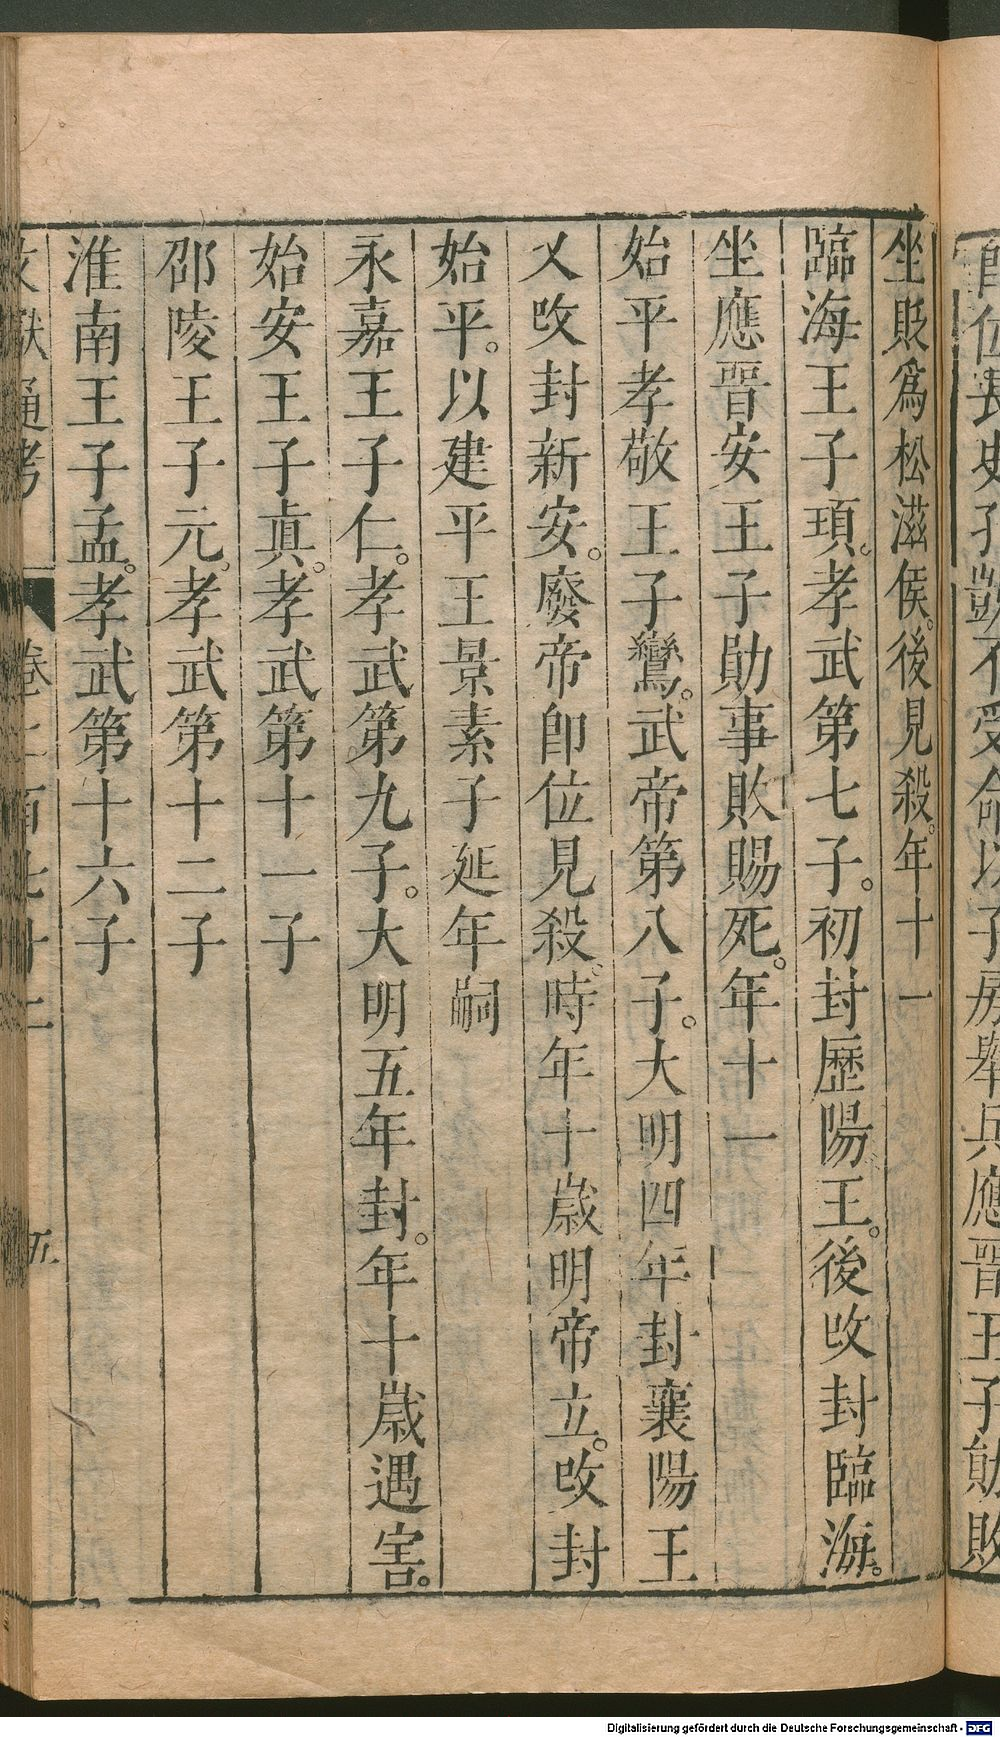 官位長史孔凱不受命以子房舉兵應晋王子勛敗
坐貶爲松滋侯。後見殺。年十一
臨海王子頊。孝武第七子。初封歷陽王。後改封臨海。
坐應晋安王子勛事敗賜死。年十一
始平孝敬王子鸞。武帝第八子。大明四年封襄陽王
又改封新安。廢帝卽位見殺。時年十歲明帝立。改封
始平。以建平王景素子延年嗣
永嘉王子仁。孝武第九子。大明五年封。年十歲遇害。
始安王子眞。孝武第十一子
邵陵王子元。孝武第十二子
淮南王子孟。孝武第十六子
文獻通考 卷二百七十二 五
Digitalisierung gefördert durch die Deutsche Forschungsgemeinschaft - DFG